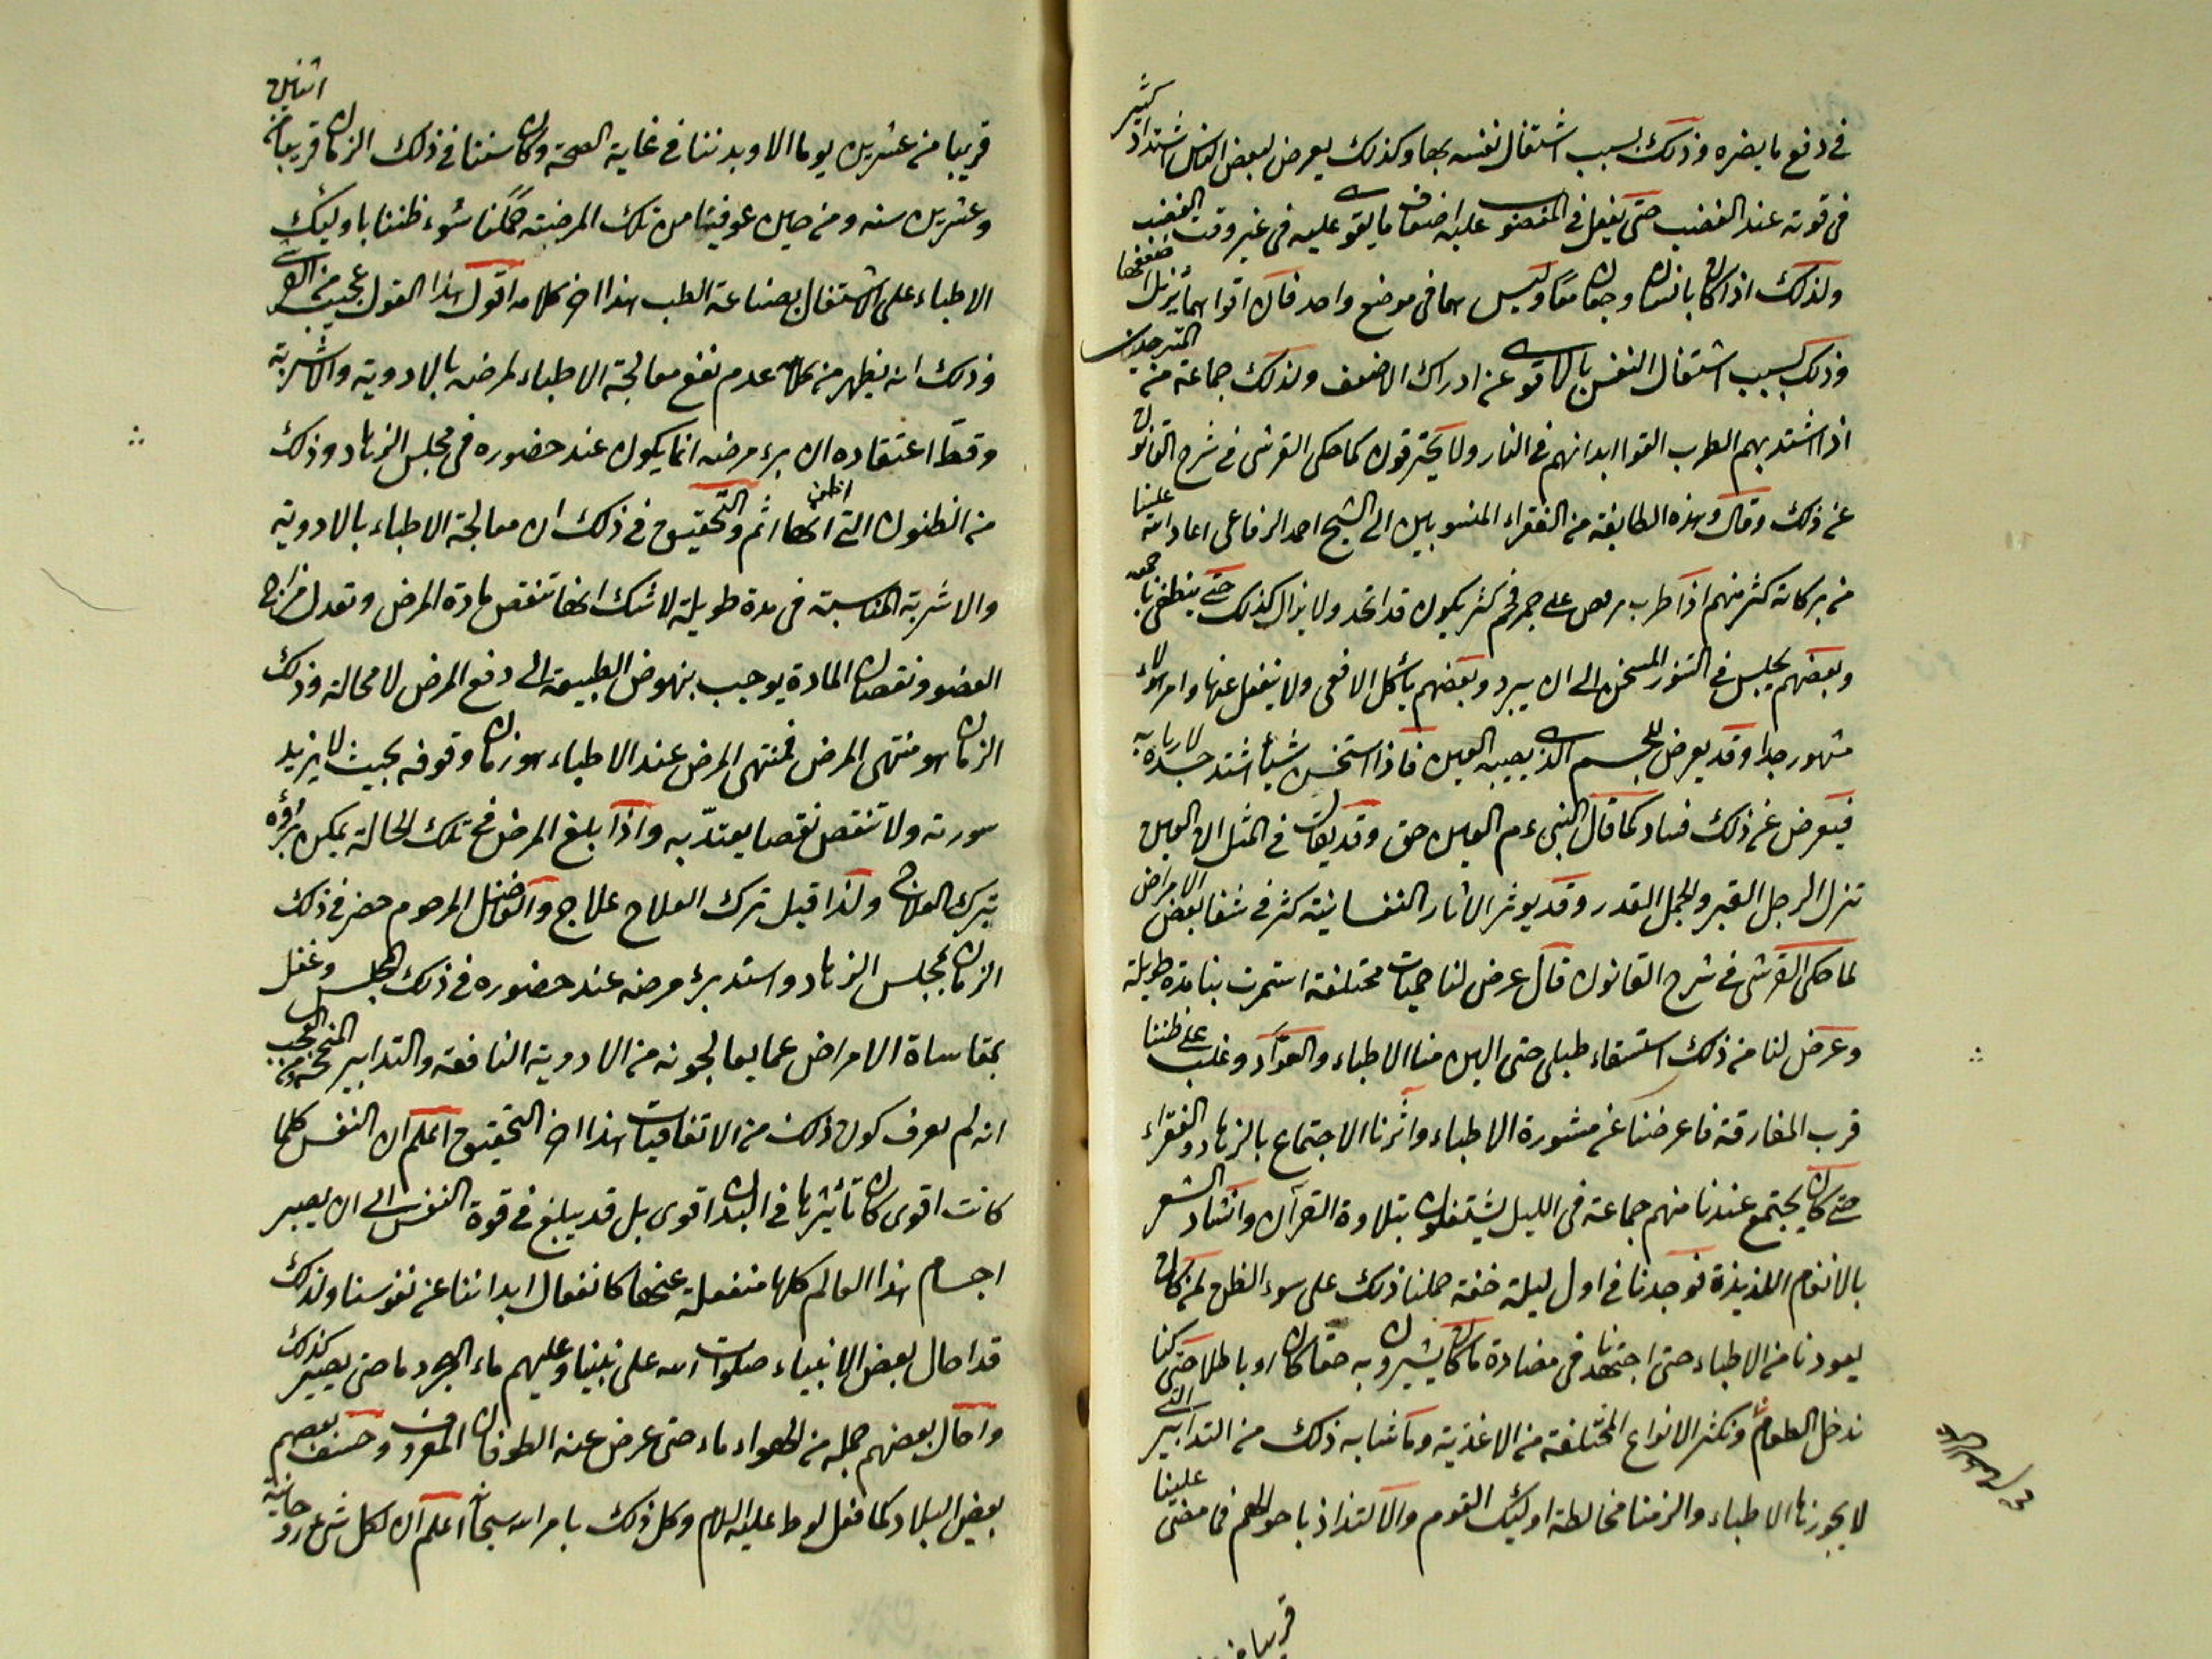 في دفع ما يضره وذلك بسبب اشتغال نفسه بها وكذلك يعرض لبعض الناس اشتداد كثير
في قوته عند الغضب حتى يفعل في المغضوب عليه اضعاف ما يقوى عليه في غير وقت الغضب
ولذلك اذا كان بانسان وجعان معا وليس هما في موضع واحد فان اقواهما يزيل اضعفهما
وذلك بسبب اشتغال النفس بالاقوى عن ادراك الاضعف ولذلك جماعة من المترجدين
اذا اشتد بهم الطرب القوا ابدانهم في النار ولا يحترقون كما حكى القرشى في شرح القانون
عن ذلك وقال وهذه الطايفة من الفقراء المنسوبين الى الشيخ احمد الرفاعى اعاد الله علينا
من بركاته كثر منهم اذا طرب رقص على جمر فحم كثر يكون قد اتخد ولا يزال كذلك حتى ينطفى
وبعضهم يجلس في التنور المسخن الى ان يبرد وبعضهم ياكل الافعى ولا ينفعل عنها وامر هؤلاء
مشهور جدا وقد يعرض للجسم الذى يصيبه العين فاذا استحسن شيأ اشتد حسده لاربابه
فيعرض عن ذلك فساد كما قال النبى عم العين حق وقد يقال في المثل ان العين
تنزل الرجل القبر والجمل القدر وقد يوثر الاثار النفسانية كثر في شفا بعض الامراض
لما حكى القرشى في شرح القانون قال عرض لنا حميات مختلفة استمرت بنا مدة طويلة
وعرض لنا من ذلك استسقاء طبلى حتى ايس منا الاطباء والعوّاد وغلب على ظننا
قرب المفارقة فاعرضنا عن مشورة الاطباء واثرنا الاجتماع بالزهاد والفقراء
حتى كان يجتمع عندنا منهم جماعة في الليل يشتغلون بتلاوة القرآن وانشاد الشعر
بالانغام اللذيذة فوجدنا في اول ليلة خفة حملنا ذلك على سوء الظن لمن كان
يعودنا من الاطباء حتى اجتهدنا في مضادة ما كان يشيرون به حقا كان او باطلا حتى كنا
ندخل الطعام ونكثر الانواع المختلفة من الاغذية وما شابه ذلك من التدابير التى
لا يجوزها الاطباء والزمنا مخالطة اوليك القوم والالتذاذ باحوالهم فما مضى علينا
قريبا من
اثنين
قريبا من عشرين يوما الا وبدننا في غاية الصحة وكان سننا في ذلك الزمان قريبا من
وعشرين سنه ومن حين عوفينا من تلك المرضته حملنا سوء ظننا باوليك
الاطباء على الاشتغال بصناعة الطب هذا اخر كلامه اقول هذا القول عجيب من القرشى
وذلك انه يظهر من كلامه عدم نفع معالجة الاطباء لمرضه بالادوية والاشربة
وقط اعتقاده ان برء مرضه انما يكون عند حضوره في مجلس الزهاد وذلك
من الظنون التى انها اثم والتحقيق في ذلك ان معالجة الاطباء بالادوية
والاشربة المناسبة في مدة طويلة لا شك انها تنقص مادة المرض وتعدل مزاج
العضو ونقصان المادة يوجب نهوض الطبيعة الى دفع المرض لا محالة وذلك
الزمان هو منتهى المرض فمنتهى المرض عند الاطباء هو زمان وقوفه بحيث لا يزيد
سورته ولا تنقص نقصا يعتدّ به واذا بلغ المرض في تلك الحالة يمكن برؤه
بترك العلاج ولذا قيل ترك العلاج علاج والفاضل المرحوم حضر في ذلك
الزمان مجلس الزهاد واستد برء مرضه عند حضوره في ذلك المجلس وغفل
بمقاساة الامراض عما يعالجونه من الادوية النافعة والتدابير المنجحة ومن العجب
انه لم يعرف كون ذلك من الاتفاقيات هذا اخر التحقيق اعلم ان النفس كلما
كانت اقوى كان تاثيرها في البدن اقوى بل قد يبلغ في قوة النفس الى ان يصير
اجسام هذا العالم كلها منفعلة عنها كانفعال ابداننا عن نفوسنا ولذلك
قد احال بعض الانبياء صلوات الله على نبينا وعليهم ماء البحر دما حتى يصير كذلك
واحال بعضهم جملة من الهواء ماء حتى عرض عنه الطوفان المعروف وخسف بعضهم
بعض البلاد كما فعل لوط عليه السلام وكل ذلك بامر الله سبحانه اعلم ان لكل شئ روحانية